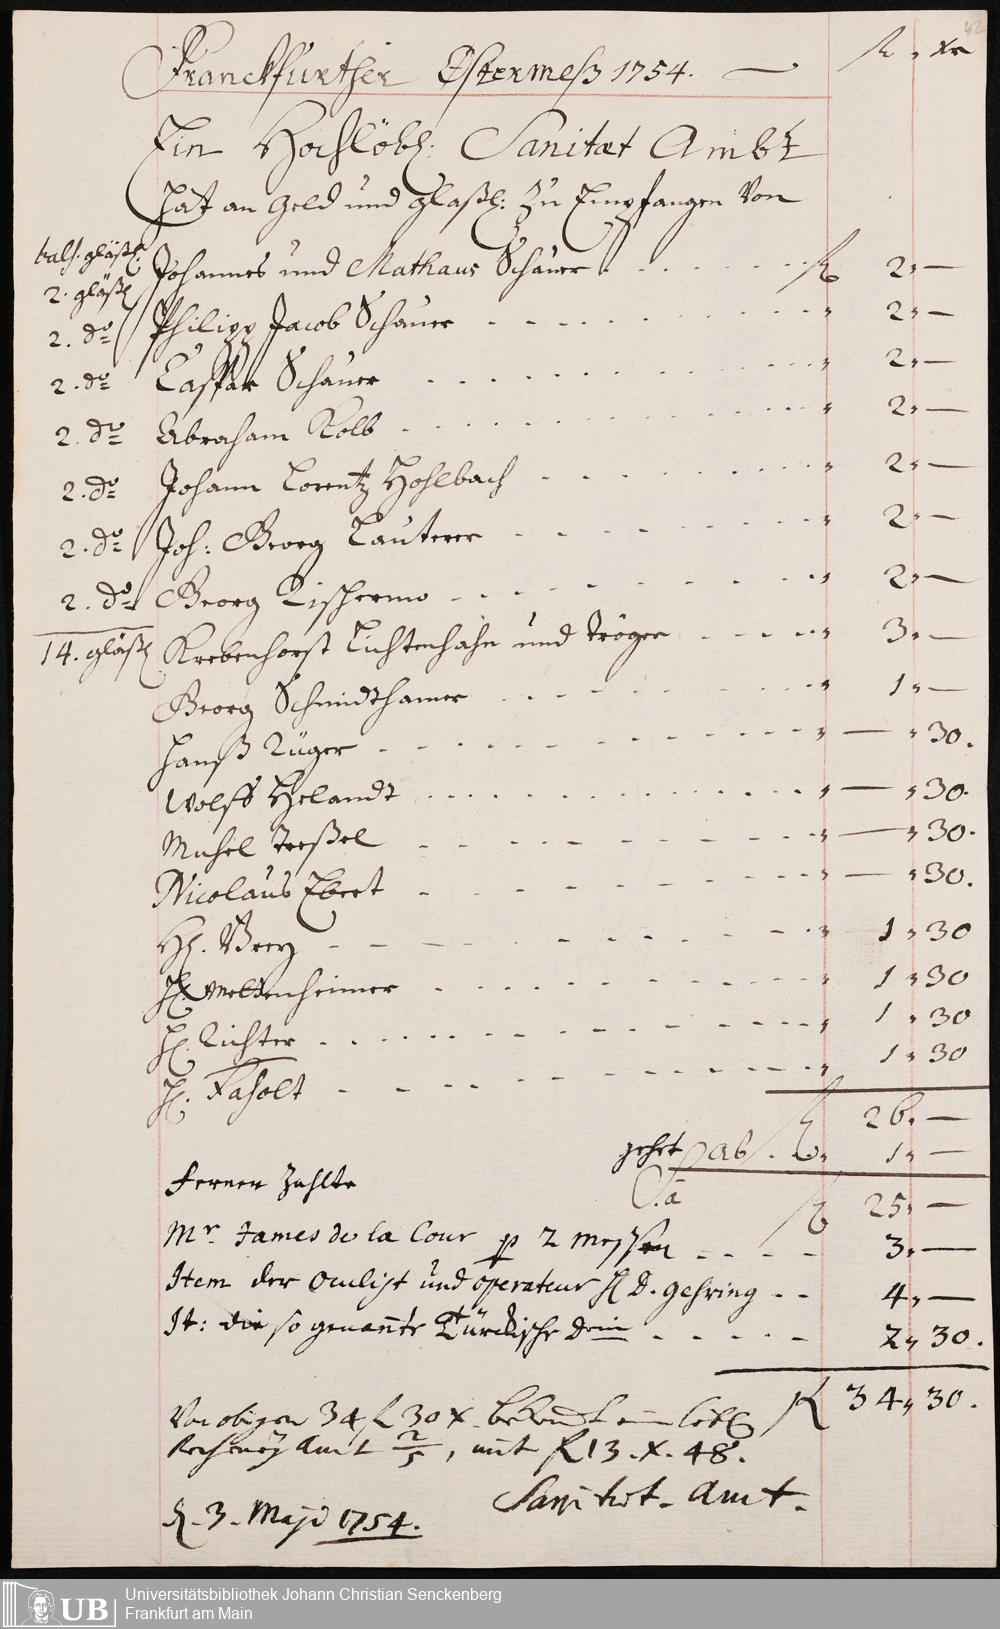 42
Franckfurther Ostermeß 1754. — fl „ xr
Ein Hochlöbl: Sanitæt Ambt
hat an Geld und glaßl: zu Empfangen Von
bals. gläßl.
2. gläßl Johannes und Mathaus Schauer . . . . . . . fl 2„—
2. do Philipp Jacob Schauer - - - - - - - - - „ 2„—
2. do Casspar Schauer - - - - - - - - - „ 2„—
2. do Abraham Kolb - - - - - - - - - „ 2„—
2. do Johann Lorentz Hohlbach - - - - - - - „ 2„—
2. do Joh: Georg Lauterer - - - - - - - „ 2„—
2. do Georg Tischermo - - - - - - - - „ 2„—
14. gläßl Krebenhorst Lichtenhahn und Tröger - - - - „ 3„—
Georg Schmidthamer - - - - - - - „ 1„—
Hanß Rüger - - - - - - - - - „ — „ 30.
Wolff Helandt - - - - - - - - - „ — „ 30.
Michel Treßel - - - - - - - - „ — „ 30.
Nicolaus Ebert - - - - - - - - „ — „ 30.
Hl. Grey - - - - - - - - - „ 1 „ 30
Hl. Mettenheimer - - - - - - - - „ 1 „ 30
Hl. Richter - - - - - - - - - „ 1 „ 30
Hl. Fasolt - - - - - - - - - „ 1 „ 30
fl 26„—
gehet ab . . „ 1„—
Sa fl 25„—
Ferner zahlte
Mr. James de la Cour p 2 Messen - - - - 3„—
Item der Oculist und operateur Hl D. Gehring - - 4„—
It: die so genante Türckische - - - - - 2„ 30.
fl 34„ 30.
Von obigen 34 fl 30 x. ein löbl
Rechney Amt 2/5, mit fl 13. x. 48.
Sanitæt. Amt.
d. 3. Maji 1754.
UB Universitätsbibliothek Johann Christian Senckenberg
Frankfurt am Main